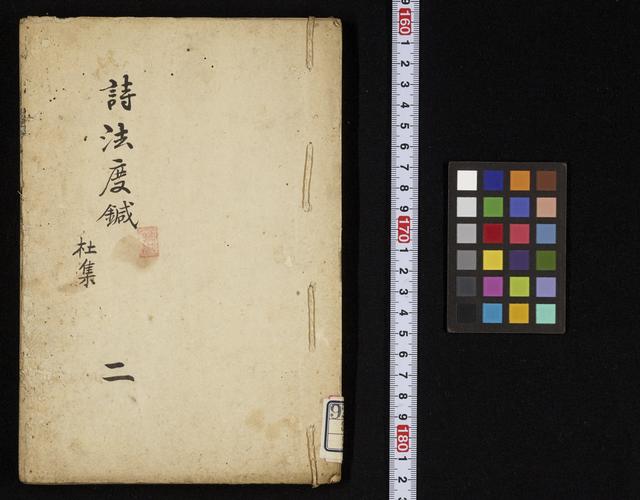 詩法度鍼
杜集
二
9
160
1
2
3
4
5
6
7
8
9
170
1
2
3
4
5
6
7
8
9
180
1
2